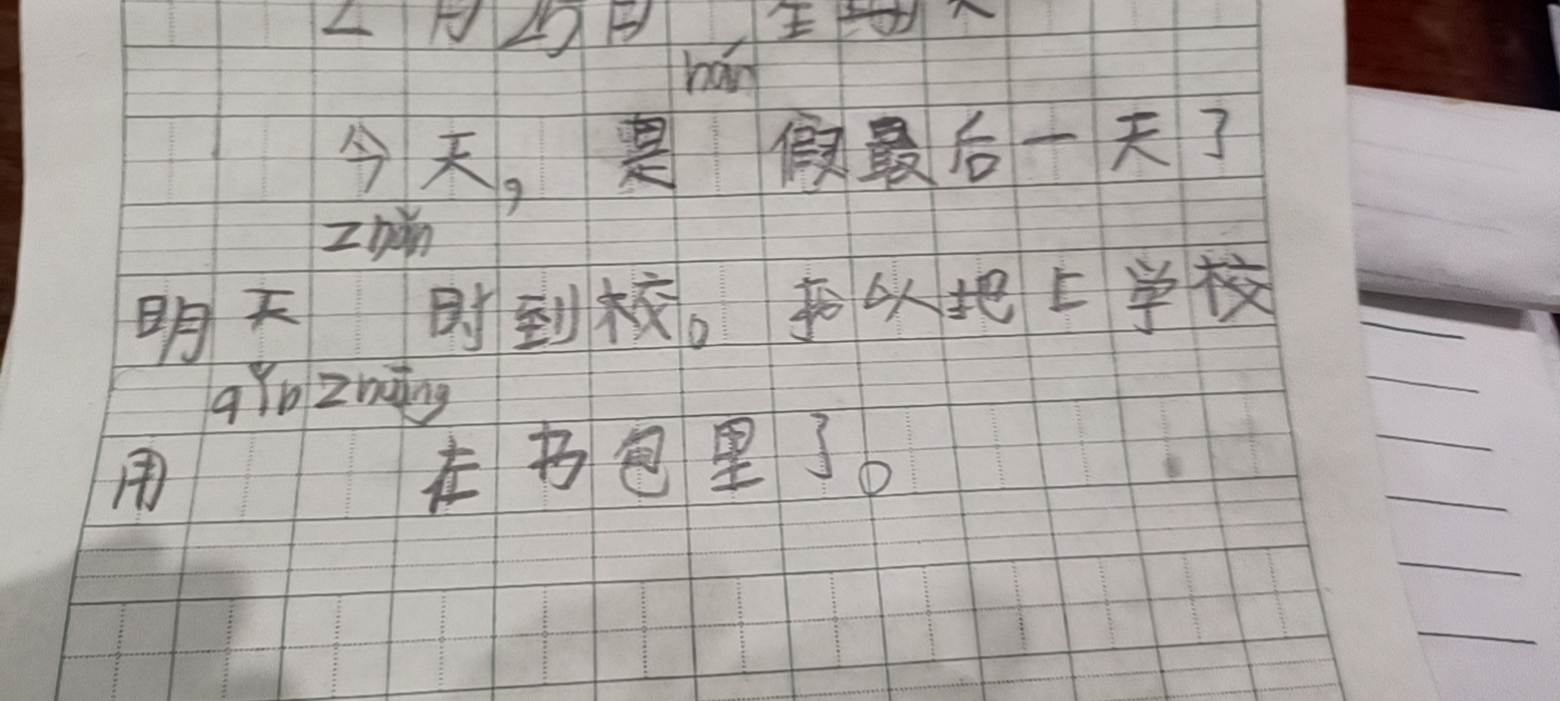 2月25日 星期
hán
今天，是 假最后一天了
zhǔn
明天 时到校。所以把上学校
qǐn zhuāng
用 在书包里了。